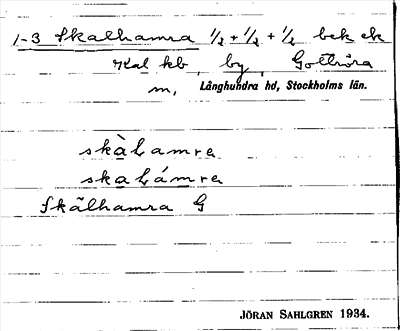 1-3 Skalhamra 1/2 + 1/2 + 1/2 bek ek
kal kb, by, Gottröra
m, Långhundra hd, Stockholms län.
skàhamra
skahámra
Skålhamra G
JÖRAN SAHLGREN 1934.